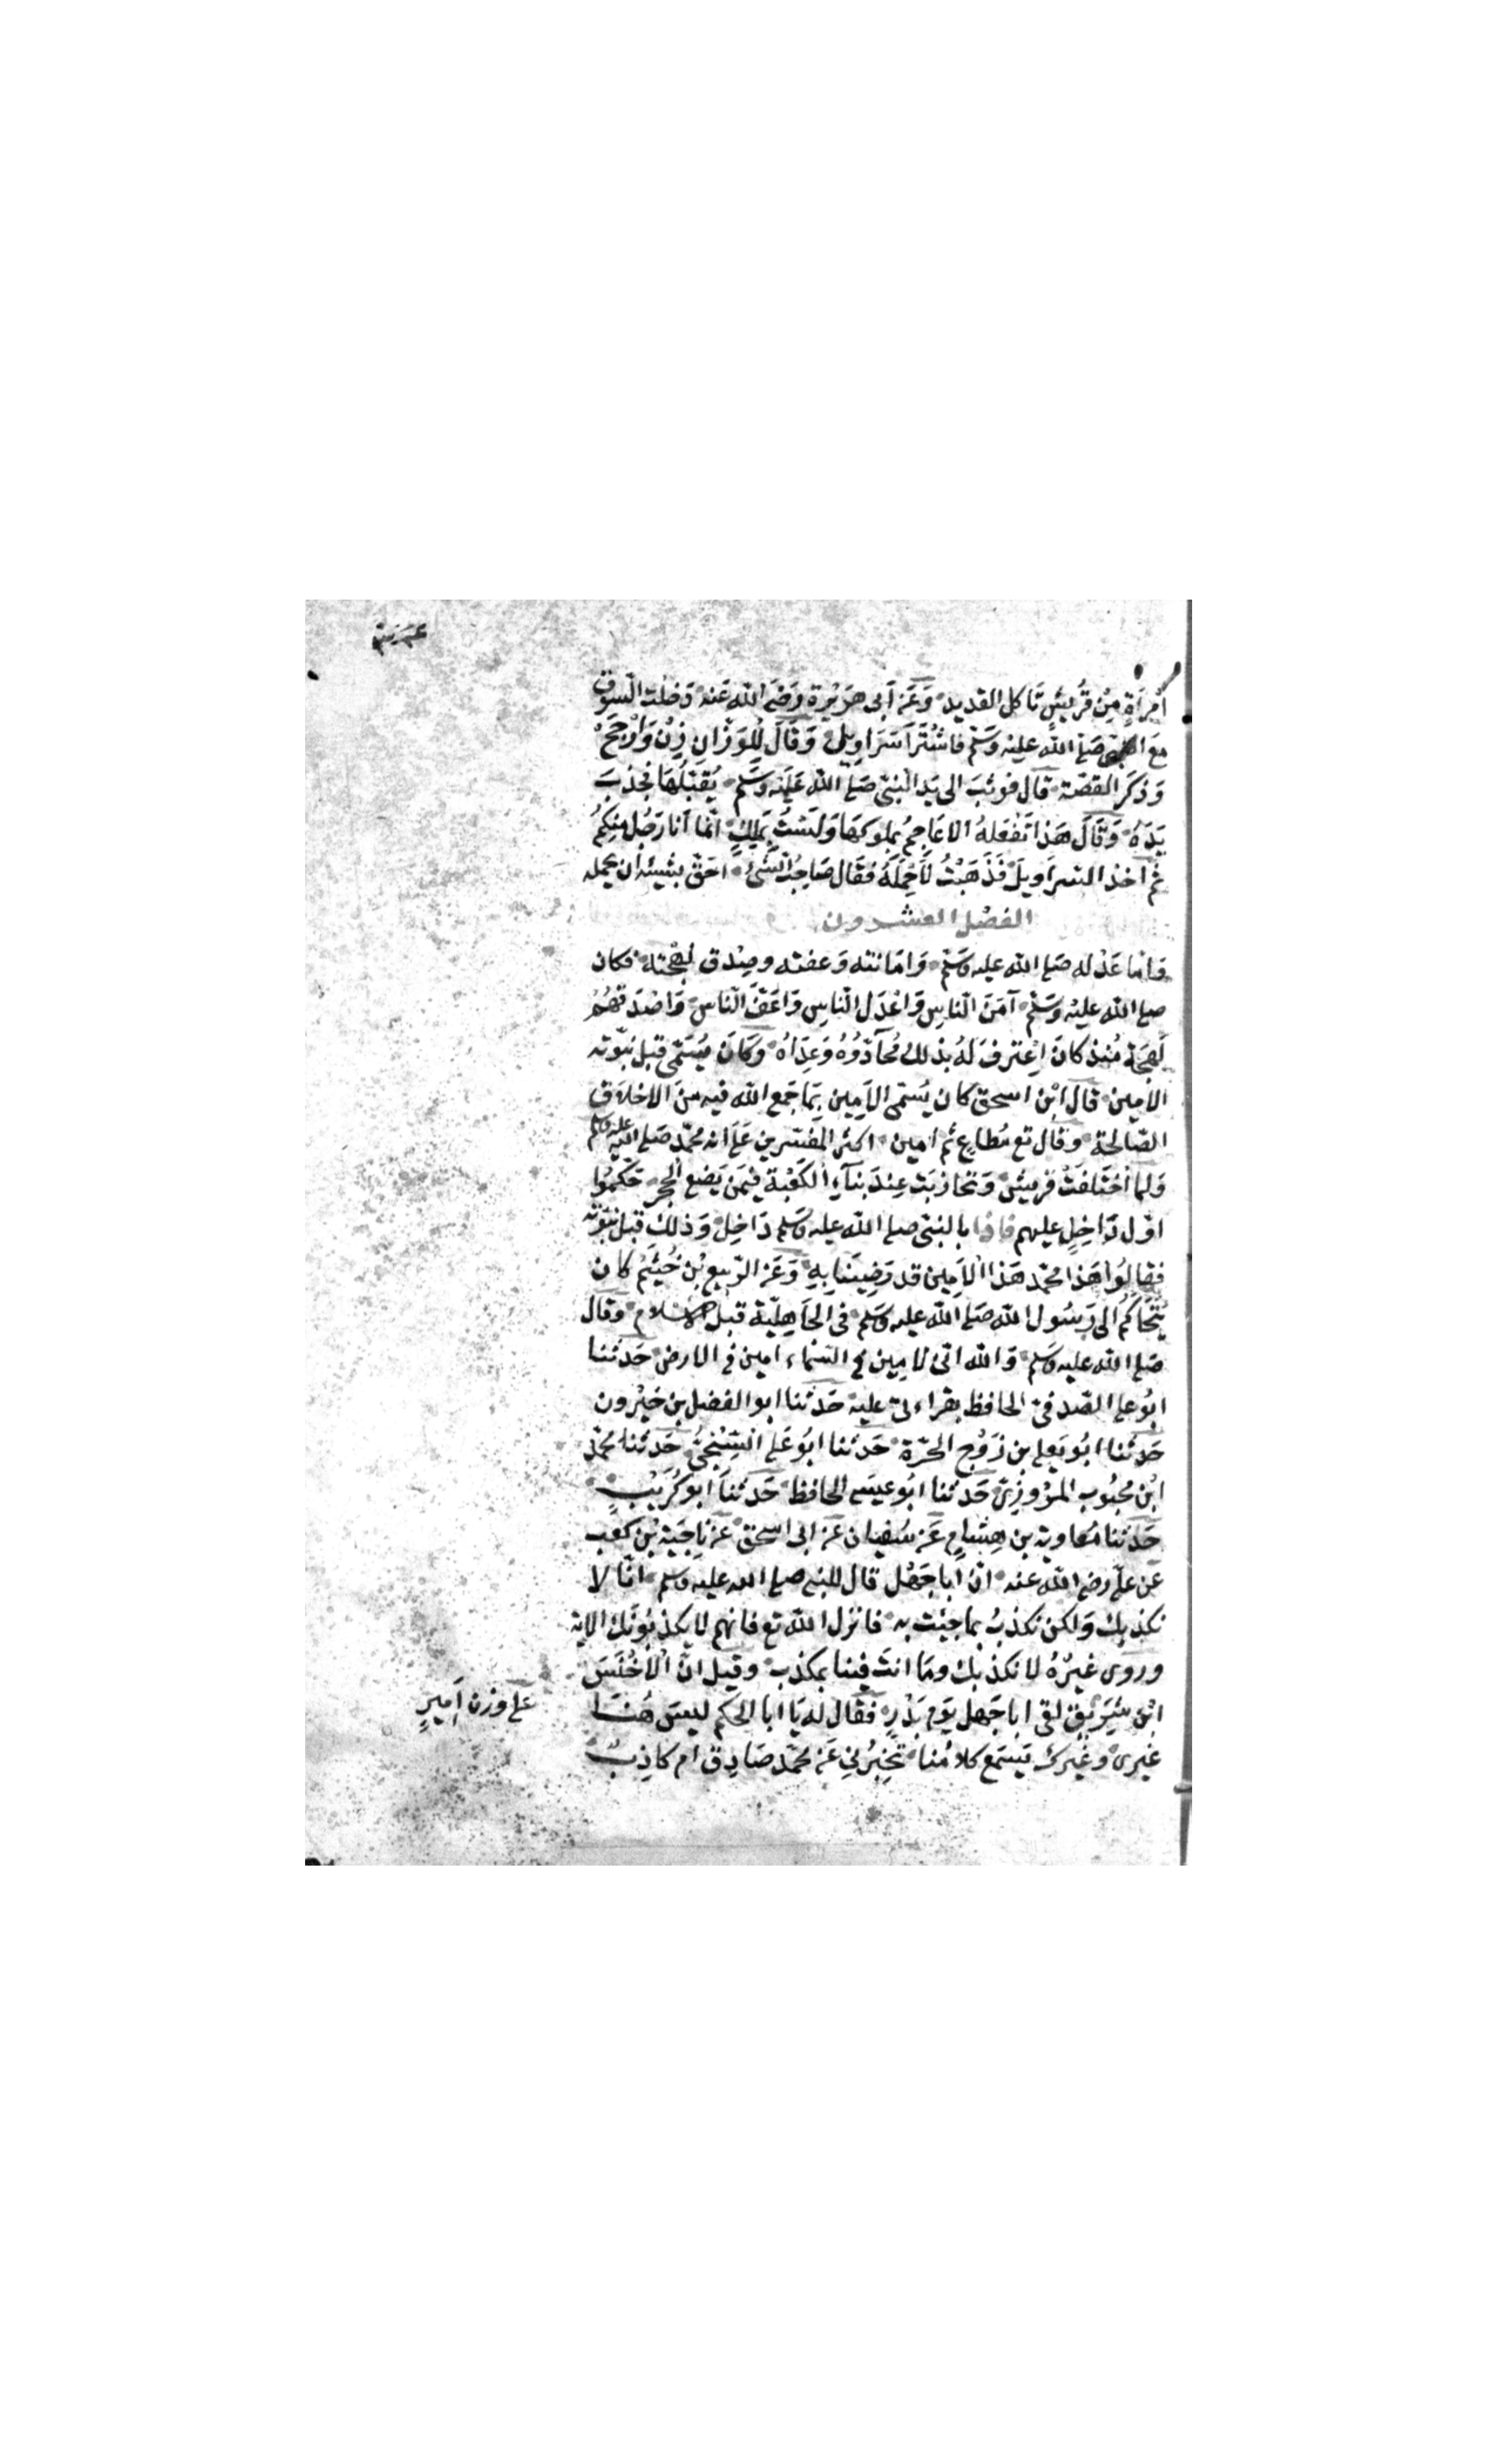 امْرَأَةٍ مِنْ قُرَيْشٍ تَأكل القديد وَعَنْ أَبى هرَيْرة رَضىَ اللّٰه عَنه دَخلْت السّوق
مَعَ النبى صَلى اللّٰه عليْه وَسَلّم فاشْتَرَا سَرَاوِيلَ وَقَالَ لِلوَزّانِ زِنْ وَارْجَحْ
وَذكَرَ القصّة قال فوثبَ الى يَدِ النّبى صَلى اللّٰه عَليْه وسَلم يُقبّلُهَا فجذبَ
يَدَهُ وَقَالَ هَذا تفْعَلهُ الاعَاجِمُ بملوكهَا وَلَسْتُ بمَلِكٍ انّما أنا رَجُل مِنكمْ
ثم أخذ السّرَاويلَ فَذَهَبْتُ لأَحْمِلَهُ فقَال صَاحِبُ الشّىْء احَقّ بشيْئه أن يحمله
الفصْل العشرون
وَامّا عَدْله صَلى اللّٰه عليه وسَلم وَامَانته وَعفته وصِدْق لهْجَته فكان
صلى اللّٰه عليْه وَسَلم آمَنَ النّاسِ وَاعْدَل النّاسِ وَاعَفّ النّاس وَاصْدَقهُمْ
لَهجَة مُنذ كانَ اِعْترفَ لَهُ بذلك مُحآدّوُهُ وَعِدَاهُ وَكانَ يُسَمّى قبل نبّوته
الامين قال ابْن اسحق كان يُسَمى الاَمِين بمَا جَمع اللّٰه فيه منَ الاخلاَق
الصّالحة وقال تع مُطاعٍ ثَم امين اكثر المفسّرين عَلى انه محمّد صَلى اللّٰه عليه وسلم
وَلما اخْتَلفَتْ قريْش وَتحازبَت عِندَ بنَآءِ الكَعْبة فيمَن يَضع الحجر حَكمُوا
اوّل دَاخِل عليهم فاذا بالنبى صلى اللّٰه عليه وسَلم دَاخِل وَذلِك قبل نبوّته
فقالُوا هَذا محمّد هَذا الاَمِين قد رَضِينَا بِهِ وَعَن الرّبيع بْن خُثَيْمْ كان
يُتَحَاكَمُ الى رَسُول اللّٰه صَلى اللّٰه عليه وسَلم فى الجَاهِليّة قبْل الاسْلام وقال
صَلى اللّٰه عليه وَسَلم وَاللّٰه انّى لامِين فى السّماء امين فى الارض حَدثنا
ابُو على الصّدفىّ الحافظ بقراءتى عليه حَدّثنا ابو الفضل بن خيْرون
حَدثنا ابُو يَعلى بن زَوْج الحرّة حَدثنا ابُو عَلى السّنْجىّ حَدثنا محمّد
ابْن محبُوب المرْوزِىّ حَدثنا ابُو عيسَى الحافظ حَدثنَا ابو كُرَيْبٍ
حَدثنا مُعاوية بن هِشامٍ عَن سُفيان عَن ابى اسحق عَن نَاجيَة بْن كعْب
عَن علىّ رضى اللّٰه عنه انّ أبا جَهْل قال للنبى صلى اللّٰه عليه وسلم انّا لا
نكذبك وَلكن نكذبُ بما جئْت به فانزل اللّٰه تع فانهم لا يكذبُونَك الاية
وروى غيْرُهُ لا نكذبك ومَا انتَ فينا بمكذب وقيل انّ الأخْنَسَ
ابْن شَرِيْق لقى ابا جَهل يَوم بَدْرٍ فقال له يَا ابا الحكم ليسَ هُنَا
غيرى وغيْرك يَسْمَع كلامُنا تخْبِرُنى عَن محمّد صَادِق ام كاذِبٌ
على وزن أَمِيرٍ